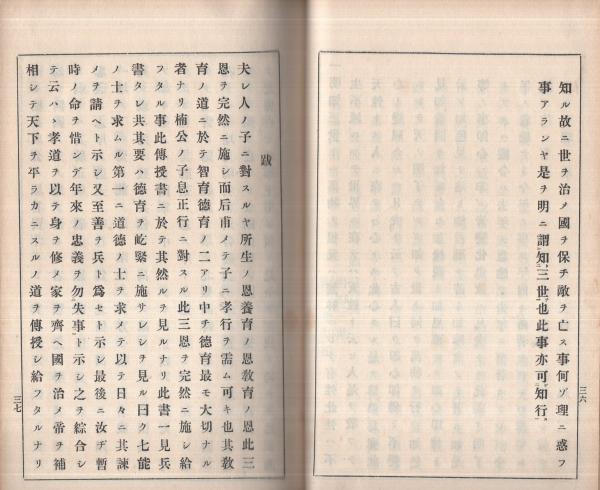 知ル故ニ世ヲ治メ國ヲ保チ敵ヲ亡ス事何ゾ理ニ惑フ
事アランヤ是ヲ明ニ謂知三世也此事亦可知行
三六
跋
夫レ人ノ子ニ對スルヤ所生ノ恩養育ノ恩教育ノ恩此三
恩ヲ完然ニ施シ而后甫メテ子ニ孝行ヲ需ム可キ也其教
育ノ道ニ於テ智育德育ノ二アリ中チ德育最モ大切ナル
者ナリ楠公ノ子息正行ニ對スル此三恩ヲ完然ニ施シ給
フタル事此傳授書ニ於テ其然ルヲ見ルナリ此書一見兵
書タレ共其要ハ德育ヲ屹緊ニ施サレシヲ見ル曰ク七能
ノ士ヲ求ムル第一ニ道德ノ士ヲ求メテ以テ日々ニ其諫
メヲ請ヘト示シ又至善ヲ兵ト爲セト示シ最後ニ汝ヂ暫
時ノ命ヲ惜ンデ年來ノ忠義ヲ勿失事ト示シ之ヲ綜合シ
テ云ハヽ孝道ヲ以テ身ヲ修メ家ヲ齊ヘ國ヲ治メ帝ヲ補
相シテ天下ヲ平ラカニスルノ道ヲ傳授シ給フタルナリ
三七